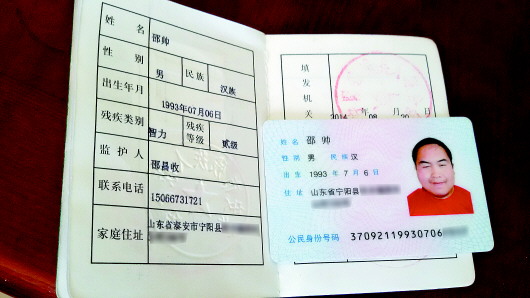 姓名 邵帅
性别 男 民族 汉族
出生年月 1993年07月06日
残疾类别 智力 残疾等级 贰级
监护人 邵晨收
联系电话 15066731721
家庭住址 山东省泰安市宁阳县
填发机关
2014 年 08 月 20
姓名 邵帅
性别 男 民族 汉
出生 1993 年 7 月 6 日
住址 山东省宁阳县
公民身份号码 37092119930706